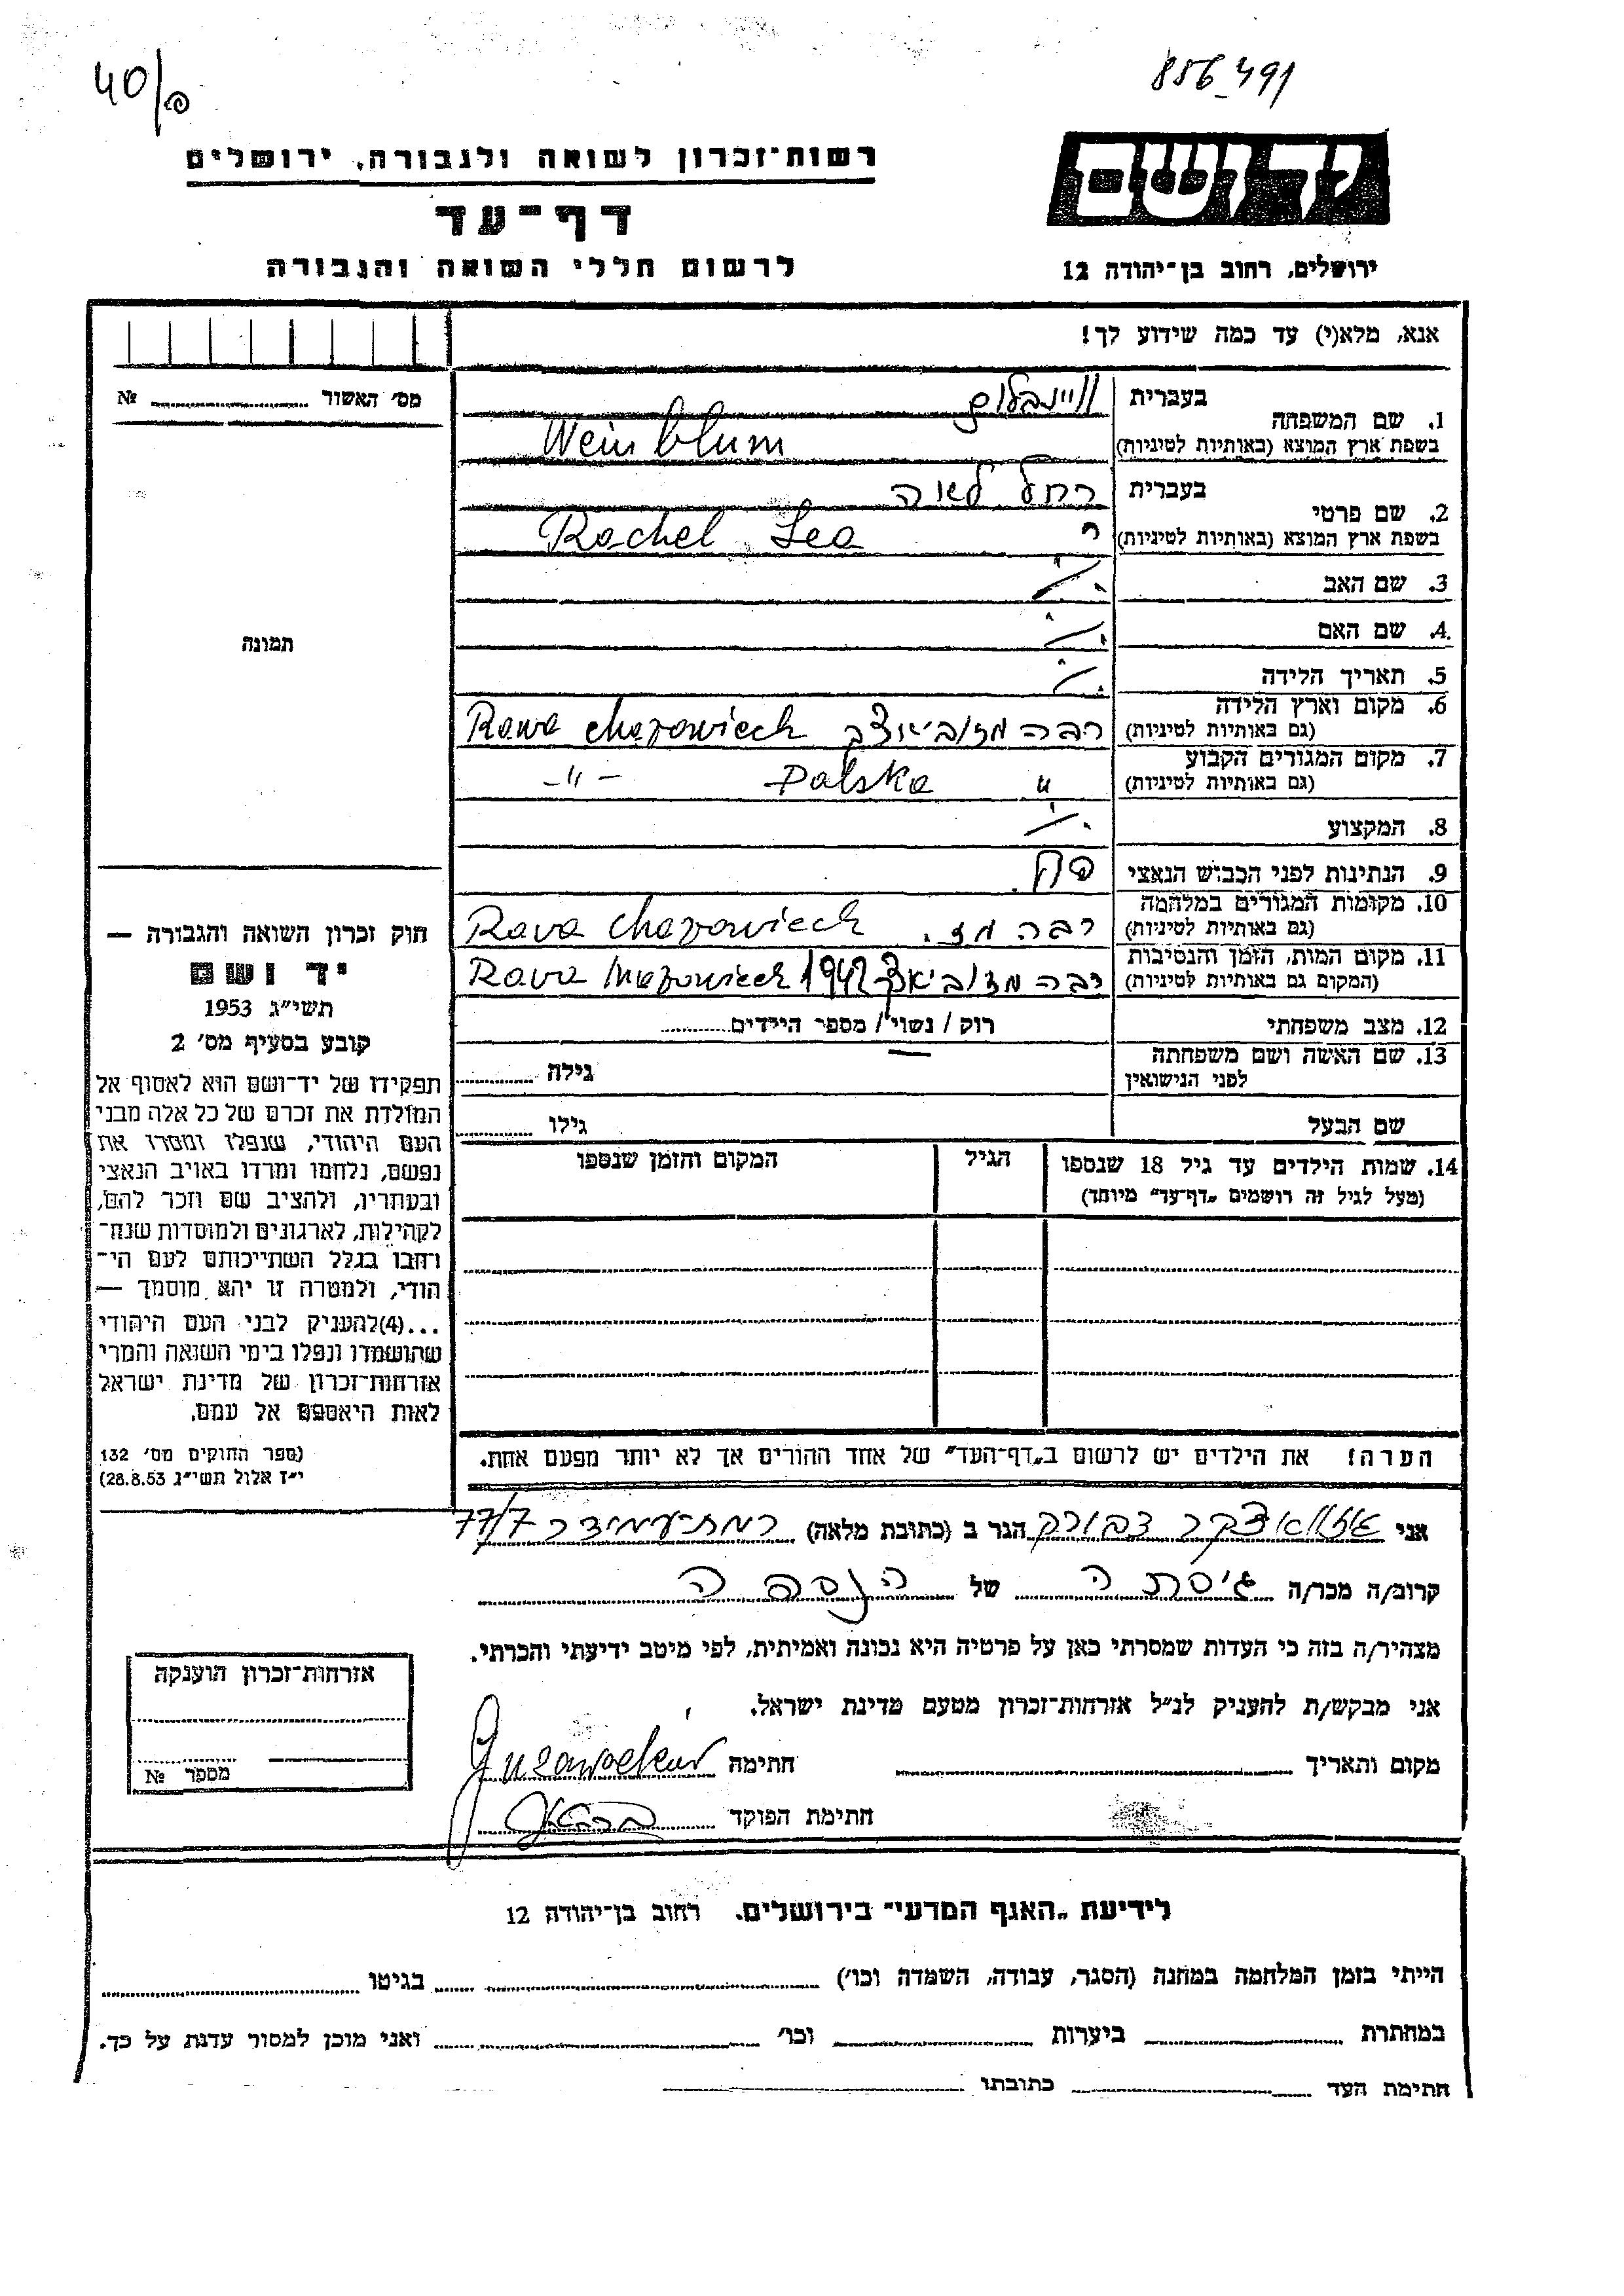 40/
856-491
רשות־זכרון לשואה ולגבורה, ירושלים
דף־עד
לרשום חללי השואה והגבורה
יד ושם
ירושלים, רחוב בן־יהודה 12
אנא, מלא(י) עד כמה שידוע לך!
מס׳ האשור № 
1. שם המשפחה
בעברית ויינבלום
בשפת ארץ המוצא (באותיות לטיניות) Weinblum
2. שם פרטי
בעברית רחל לאה
בשפת ארץ המוצא (באותיות לטיניות) Rachel Lea
3. שם האב
4. שם האם
5. תאריך הלידה
6. מקום וארץ הלידה
(גם באותיות לטיניות)
7. מקום המגורים הקבוע
(גם באותיות לטיניות) " Polska -"-
8. המקצוע
9. הנתינות לפני הכבוש הנאצי
10. מקומות המגורים במלחמה
(גם באותיות לטיניות) רבה מז.
11. מקום המות, הזמן והנסיבות
(המקום גם באותיות לטיניות) 1942 Rava Mazowieck
12. מצב משפחתי רוק / נשוי / מספר הילדים
13. שם האשה ושם משפחתה
לפני הנישואין
גילה
שם הבעל
גילו
14. שמות הילדים עד גיל 18 שנספו
(מעל לגיל זה רושמים „דף־עד” מיוחד)
הגיל
המקום והזמן שנספו
הערה! את הילדים יש לרשום ב„דף־העד” של אחד ההורים אך לא יותר מפעם אחת.
תמונה
חוק זכרון השואה והגבורה —
יד ושם
תשי״ג 1953
קובע בסעיף מס׳ 2
תפקידו של יד־ושם הוא לאסוף אל
המולדת את זכרם של כל אלה מבני
העם היהודי, שנפלו ומסרו את
נפשם, נלחמו ומרדו באויב הנאצי
ובעוזריו, ולהציב שם וזכר להם,
לקהילות, לארגונים ולמוסדות שנח־
רבו בגלל השתייכותם לעם הי־
הודי, ולמטרה זו יהא מוסמך —
...(4)להעניק לבני העם היהודי
שהושמדו ונפלו בימי השואה והמרי
אזרחות־זכרון של מדינת ישראל
לאות היאספם אל עמם.
(ספר החוקים מס׳ 132
י״ז אלול תשי״ג 28.8.53)
אני דבורה הגר ב (כתובת מלאה) רמת־עמידר 77/7
קרוב/ה מכר/ה גיסתה של הנספה
מצהיר/ה בזה כי העדות שמסרתי כאן על פרטיה היא נכונה ואמיתית, לפי מיטב ידיעתי והכרתי.
אני מבקש/ת להעניק לנ״ל אזרחות־זכרון מטעם מדינת ישראל.
מקום ותאריך חתימה
חתימת הפוקד
אזרחות־זכרון הוענקה
מספר №
לידיעת „האגף המדעי” בירושלים. רחוב בן־יהודה 12
הייתי בזמן המלחמה במחנה (הסגר, עבודה, השמדה וכו׳) בגיטו
במחתרת ביערות וכו׳ ואני מוכן למסור עדות על כך.
חתימת העד כתובתו